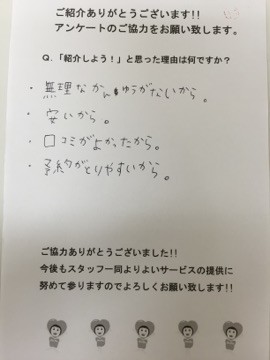 ご紹介ありがとうございます!!
アンケートのご協力をお願い致します。
Q.「紹介しよう!」と思った理由は何ですか?
・無理なかんゆうがないから。
・安いから。
・口コミがよかったから。
・予約がとりやすいから。
ご協力ありがとうございました!!
今後もスタッフ一同よりよいサービスの提供に
努めて参りますのでよろしくお願い致します!!